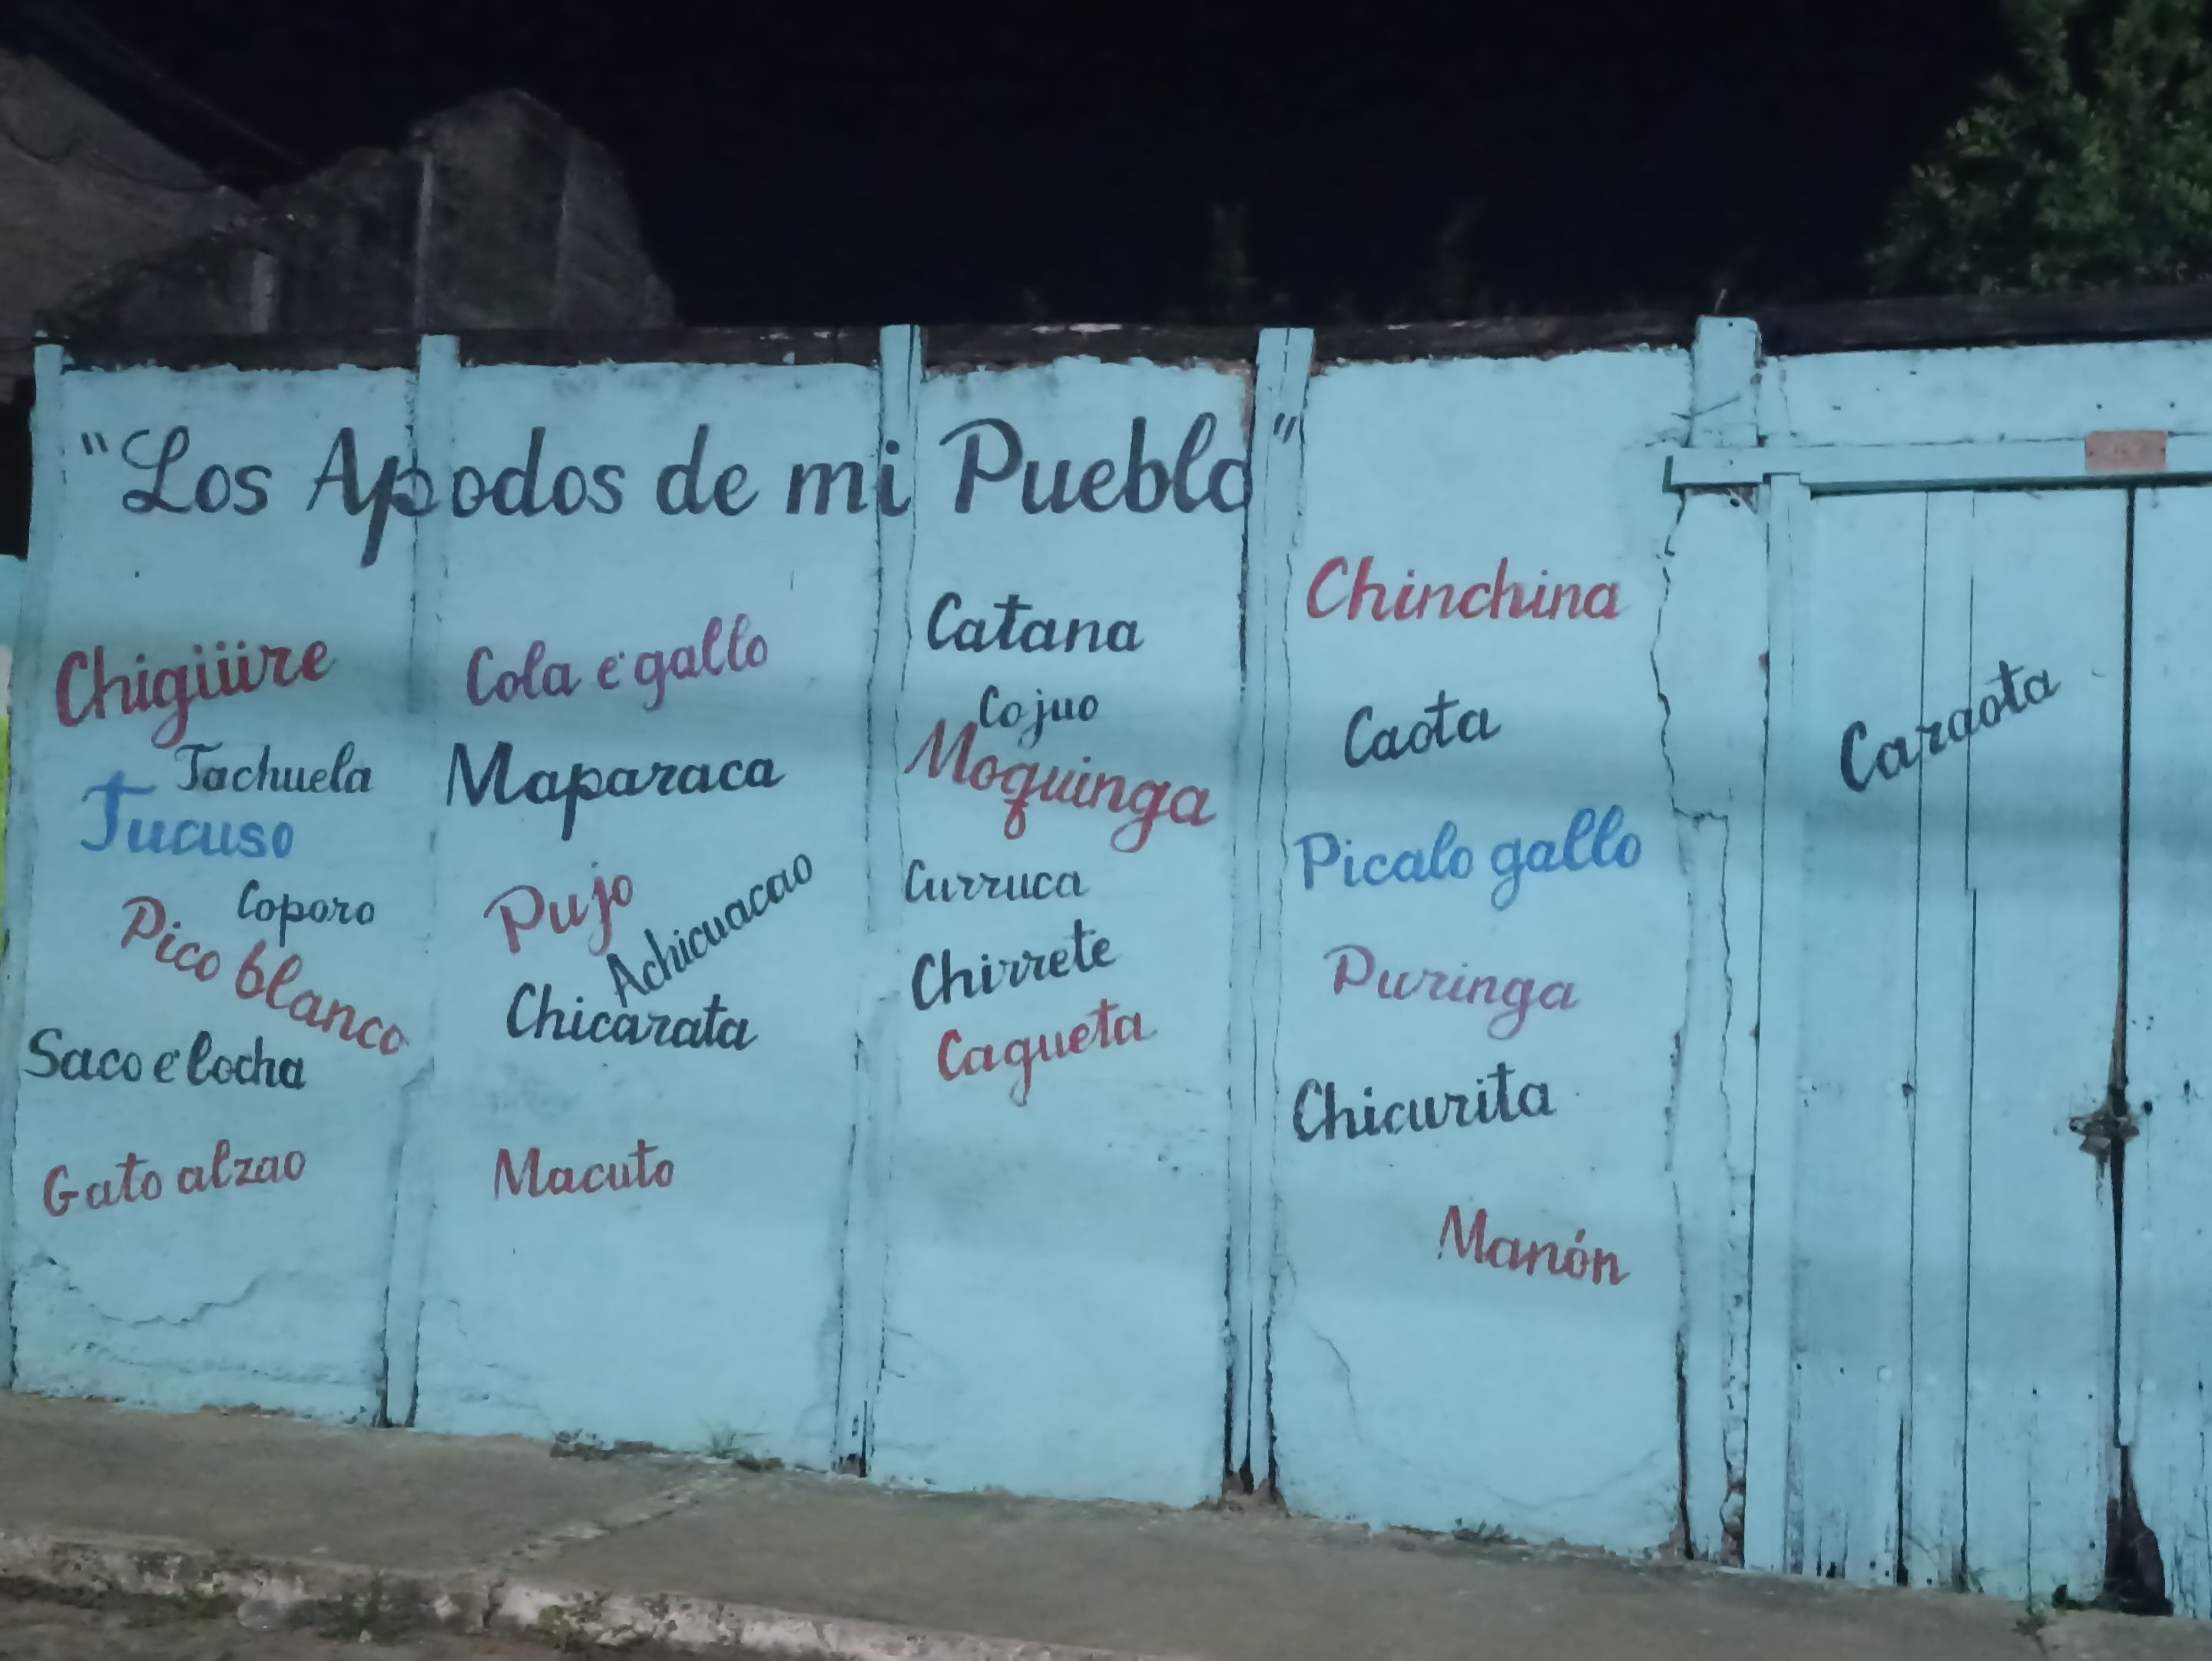 "Los Apodos de mi Pueblo"
Chigüire
Tachuela
Tucuso
Coporo
Pico blanco
Saco e' locha
Gato alzao
Cola e' gallo
Maparaca
Pujo
Achicuacao
Chicarata
Macuto
Catana
Cojuo
Moquinga
Curruca
Chirrete
Caqueta
Chinchina
Caota
Picalo gallo
Puringa
Chicurita
Manón
Caraota